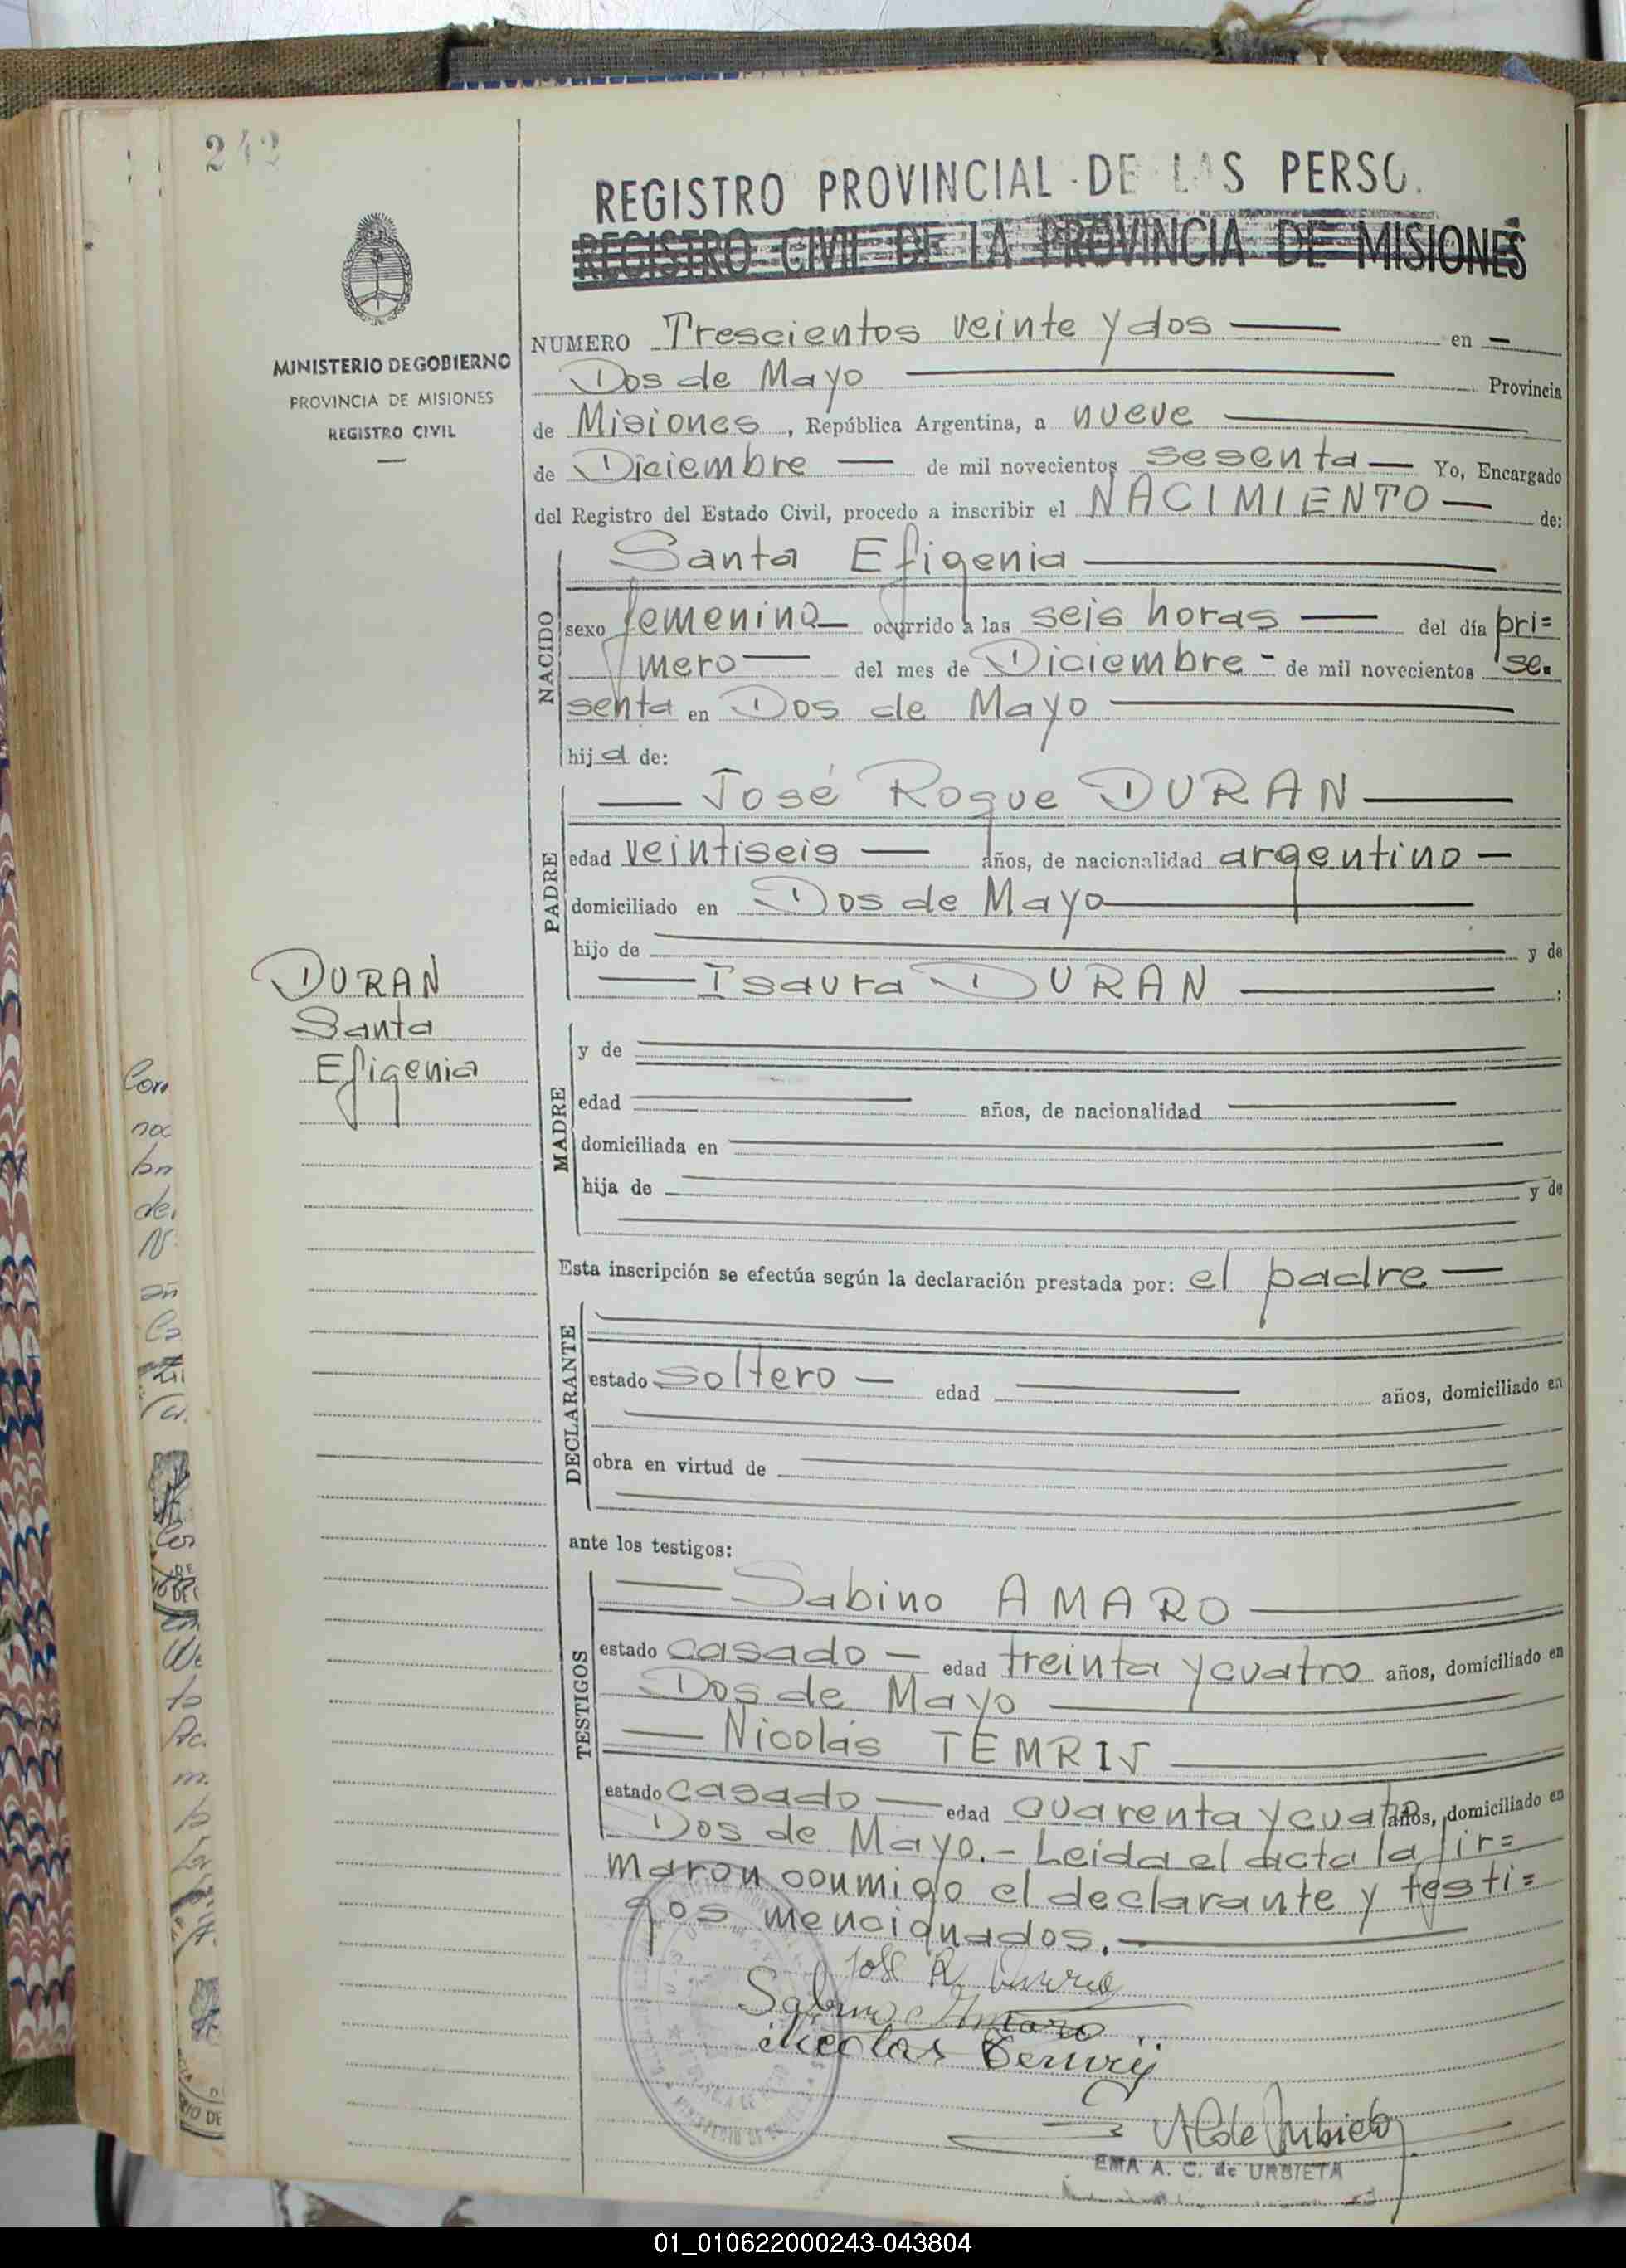 242
REGISTRO PROVINCIAL DE LAS PERSO.
REGISTRO CIVIL DE LA PROVINCIA DE MISIONES
MINISTERIO DE GOBIERNO
PROVINCIA DE MISIONES
REGISTRO CIVIL
NUMERO Trescientos veinte y dos en
Dos de Mayo Provincia
de Misiones, República Argentina, a nueve
de Diciembre de mil novecientos sesenta Yo, Encargado
del Registro del Estado Civil, procedo a inscribir el NACIMIENTO de:
NACIDO
Santa Efigenia
sexo femenino ocurrido a las seis horas del día pri=
mero del mes de Diciembre - de mil novecientos se-
senta en Dos de Mayo
hija de:
PADRE
José Roque DURAN
edad veintiseis años, de nacionalidad argentino
domiciliado en Dos de Mayo
hijo de y de
Isaura DURAN :
DURAN
Santa
Efigenia
MADRE
y de
edad años, de nacionalidad
domiciliada en
hija de y de
Esta inscripción se efectúa según la declaración prestada por: el padre
DECLARANTE
estado soltero edad años, domiciliado en
obra en virtud de
ante los testigos:
TESTIGOS
Sabino AMARO
estado casado edad treinta y cuatro años, domiciliado en
Dos de Mayo
Nicolás TEMRIJ
estado casado edad cuarenta y cuatro años, domiciliado en
Dos de Mayo.- Leida el acta la fir=
maron conmigo el declarante y testi=
gos mencionados.
José R. Duran
Sabino Amaro
Nicolas Temrij
A C de Urbieta
EMA A. C. de URBIETA
01_010622000243-043804